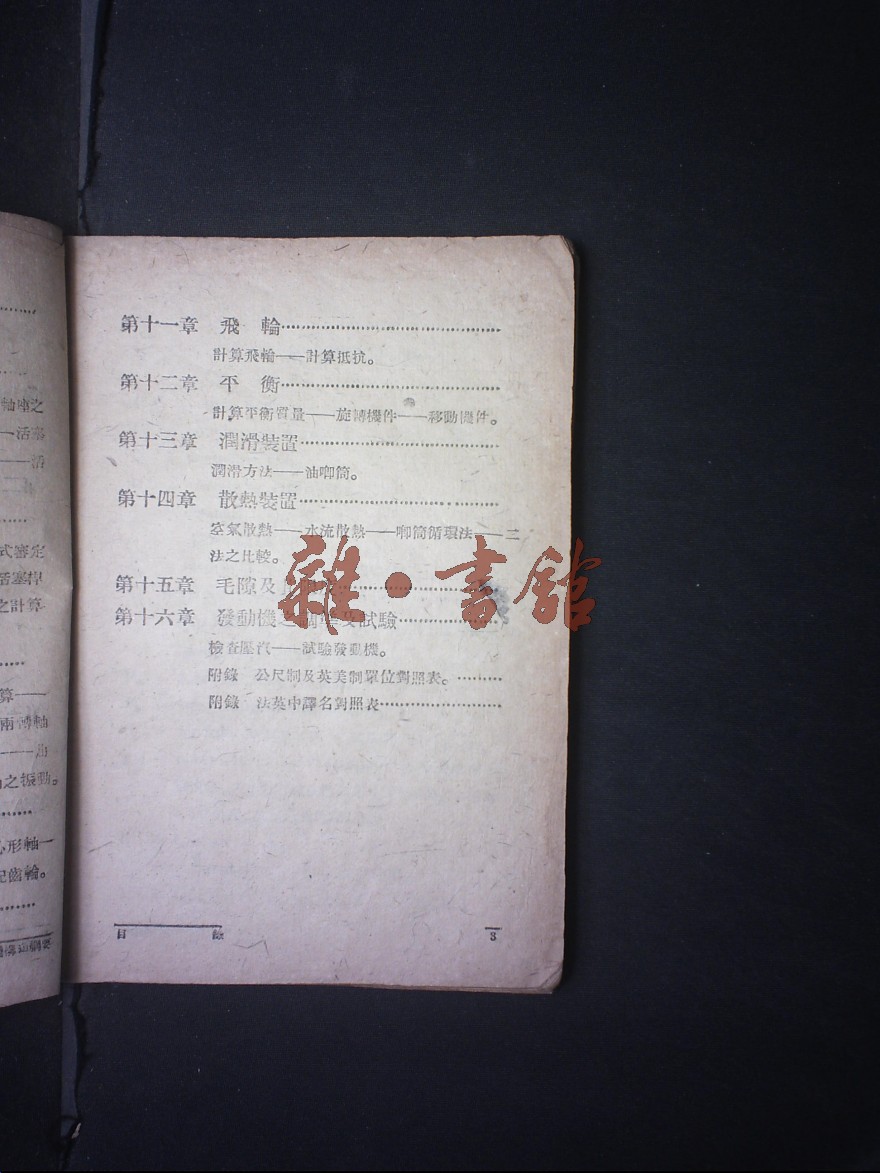 軸座之
—活塞
——活
式審定
活塞桿
之計算
算——
兩轉軸
之振動。
心形軸—
配齒輪。
第十一章 飛輪……………………
計算飛輪——計算抵抗。
第十二章 平衡……………………
計算平衡質量——旋轉機件——移動機件。
第十三章 潤滑裝置……………………
潤滑方法——油唧筒。
第十四章 散熱裝置……………………
空氣散熱——水流散熱——唧筒循環法——三
法之比較。
第十五章 毛隙及……………………
第十六章 發動機之及試驗……………
檢查壓汽——試驗發動機。
附錄 公尺制及英美制單位對照表。………
附錄 法英中譯名對照表……………
目錄 3
雜·書館